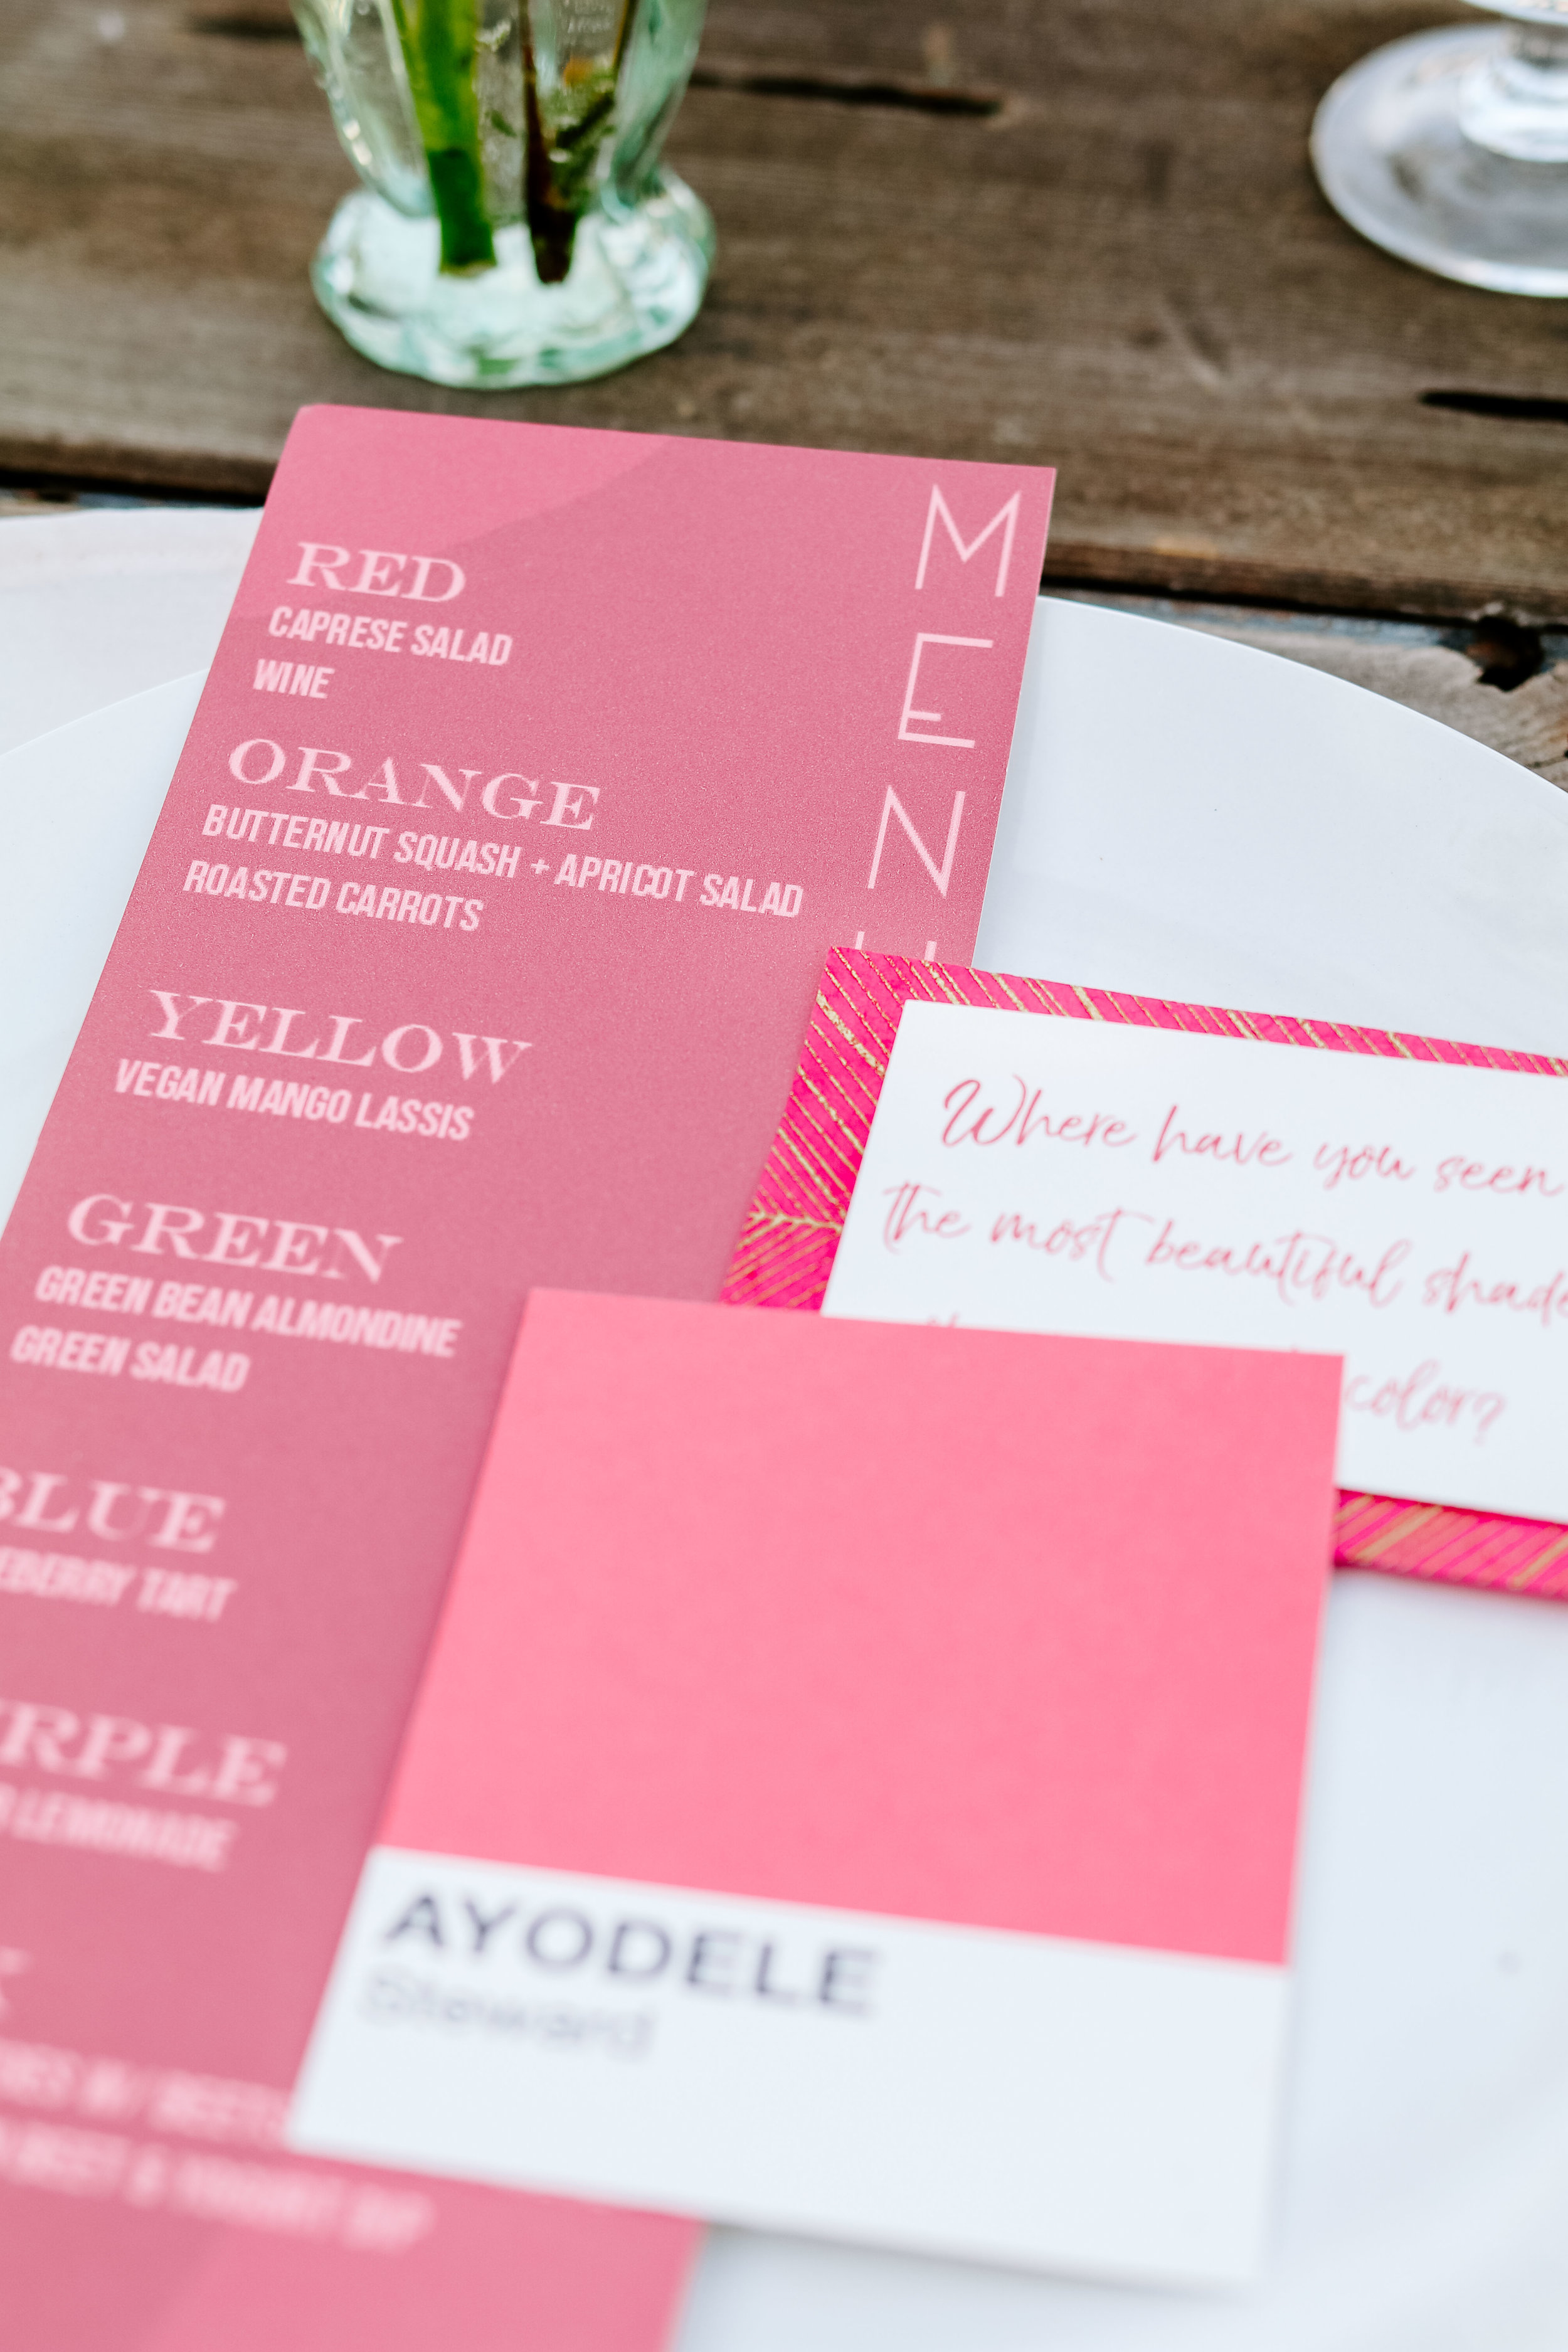 MENU
RED
CAPRESE SALAD
WINE
ORANGE
BUTTERNUT SQUASH + APRICOT SALAD
ROASTED CARROTS
YELLOW
VEGAN MANGO LASSIS
GREEN
GREEN BEAN ALMONDINE
GREEN SALAD
BLUE
EBERRY TART
RPLE
LEMONADE
W/ BEETS
BEET & YOGURT DIP
Where have you seen
the most beautiful shade
color?
AYODELE
Steward